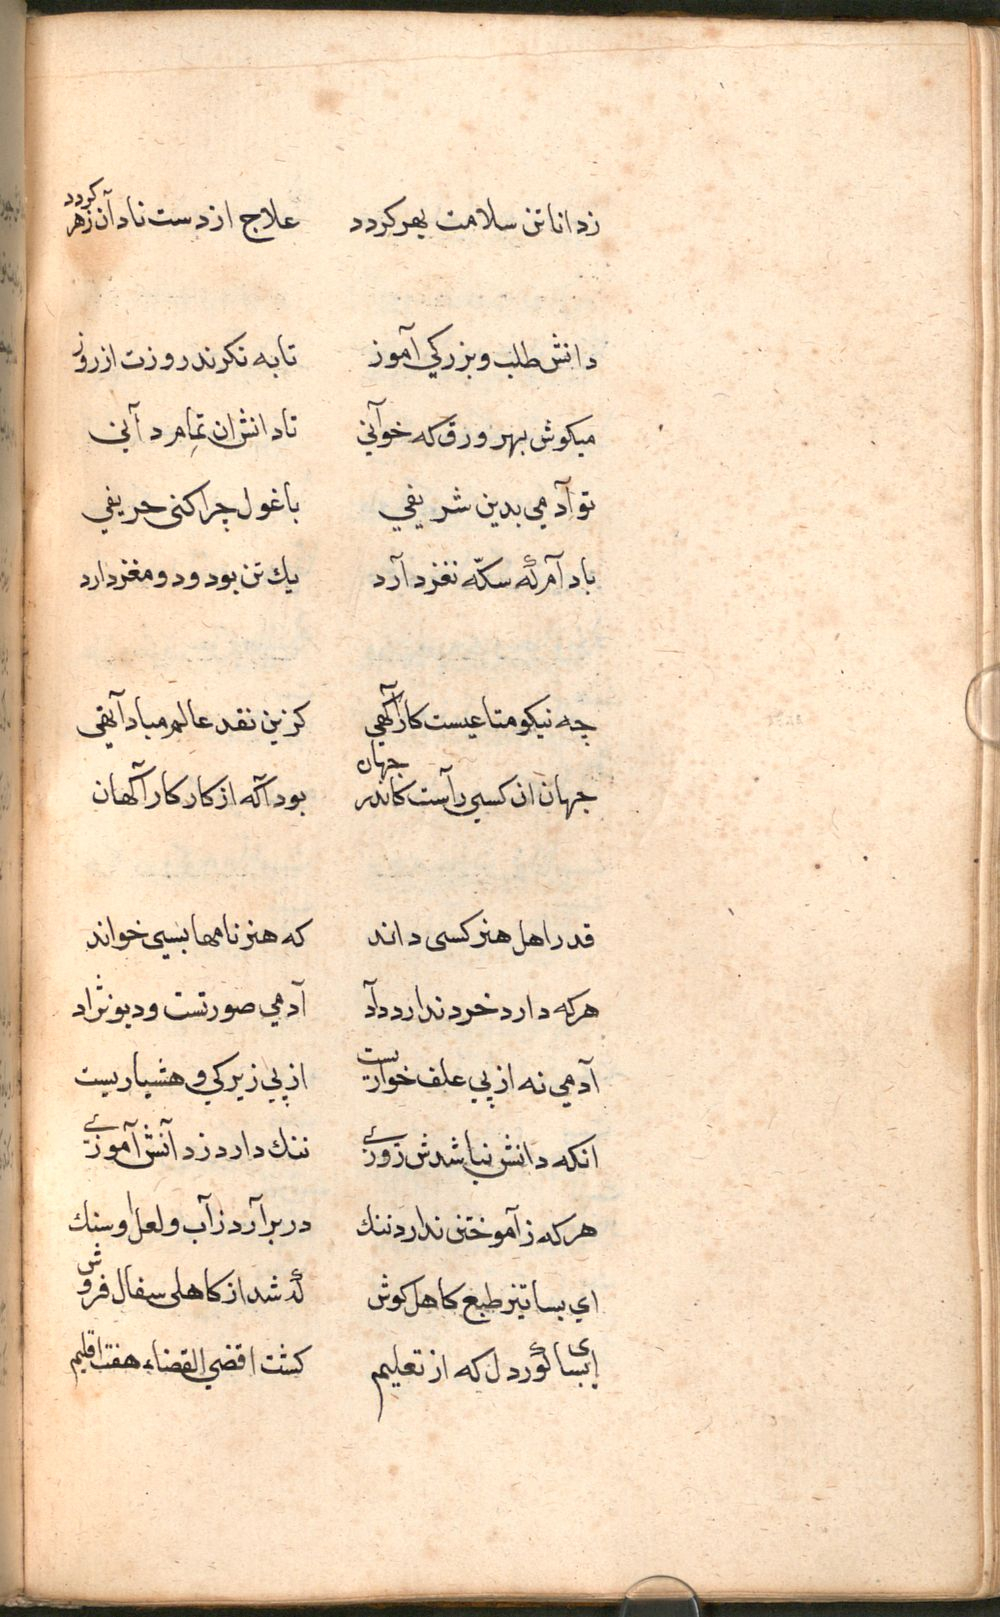 زداناتن سلامت بهر کردد علاج از دست نادآن زهر کردد
دانش طلب و بزرکي آموز تا به نکرند روزت از روز
میکوش بهر ورق که خوآني تا دانش ان تمام دآني
تو آدمي بدین شریفي با غول چرا کنی حریفي
باد آمر که سکّه نغز دآرد یك تن بود و دو مغز دارد
چه نیکو متاعیست کار آکهي کزین نقد عالم مباد آتهي
جهان ان کسي رآست کاندر جهان بود آکه از کار کار آکهان
قدر اهل هنر کسی داند که هنر نامها بسي خواند
هرکه دارد خرد ندارد دآد آدمي صورتست و دیو نژاد
آدمي نه از پي علف خواریست از پي زیرکي و هشیاریست
انکه دانش نباشدش روزی ننك دارد ز دآنش آموزی
هرکه ز آموختن ندارد ننك در بر آرد ز آب و لعل او سنك
اي بسا تیز طبع کاهل کوش که شد از کاهلی سفال فروش
ای بسا کور دل که از تعلیم کشت اقضي القضاء هفت اقلیم